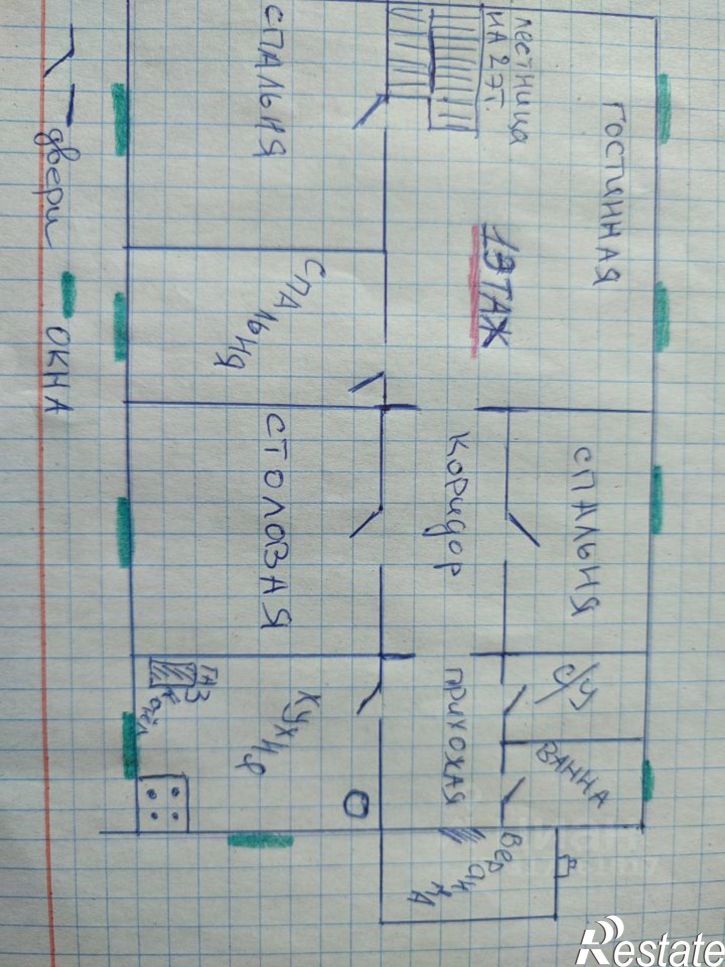 1 ЭТАЖ
ГОСТИННАЯ
ЛЕСТНИЦА
НА 2 ЭТ.
СПАЛЬНЯ
СПАЛЬНЯ
СПАЛЬНЯ
КОРИДОР
СТОЛОВАЯ
С/У
ВАННА
ПРИХОЖАЯ
КУХНЯ
ГАЗ
КОТЁЛ
ВЕРАНДА
двери
ОКНА
Restate